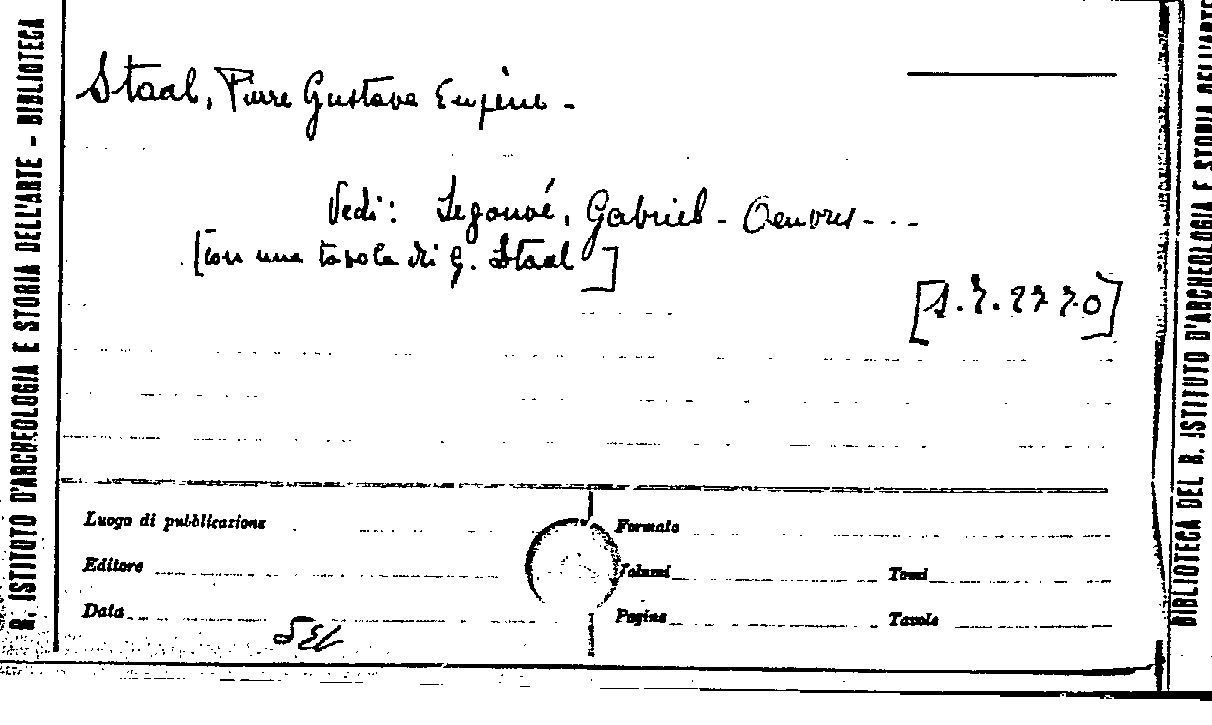 R. ISTITUTO D'ARCHEOLOGIA E STORIA DELL'ARTE - BIBLIOTECA
Staal, Pierre Gustave Eugène -
Vedi: Legouvé, Gabriel - Oeuvres - ...
[con una tavola di G. Staal]
Luogo di pubblicazione
Formato
Editore
Volumi
Tomi
Data
Pagine
Tavole
BIBLIOTECA DEL R. ISTITUTO D'ARCHEOLOGIA E STORIA DELL'ARTE